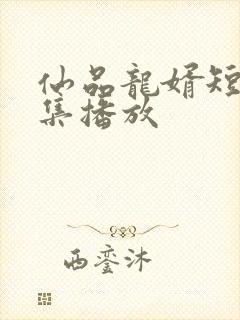 仙品龍婿短
集播放
西銮沐